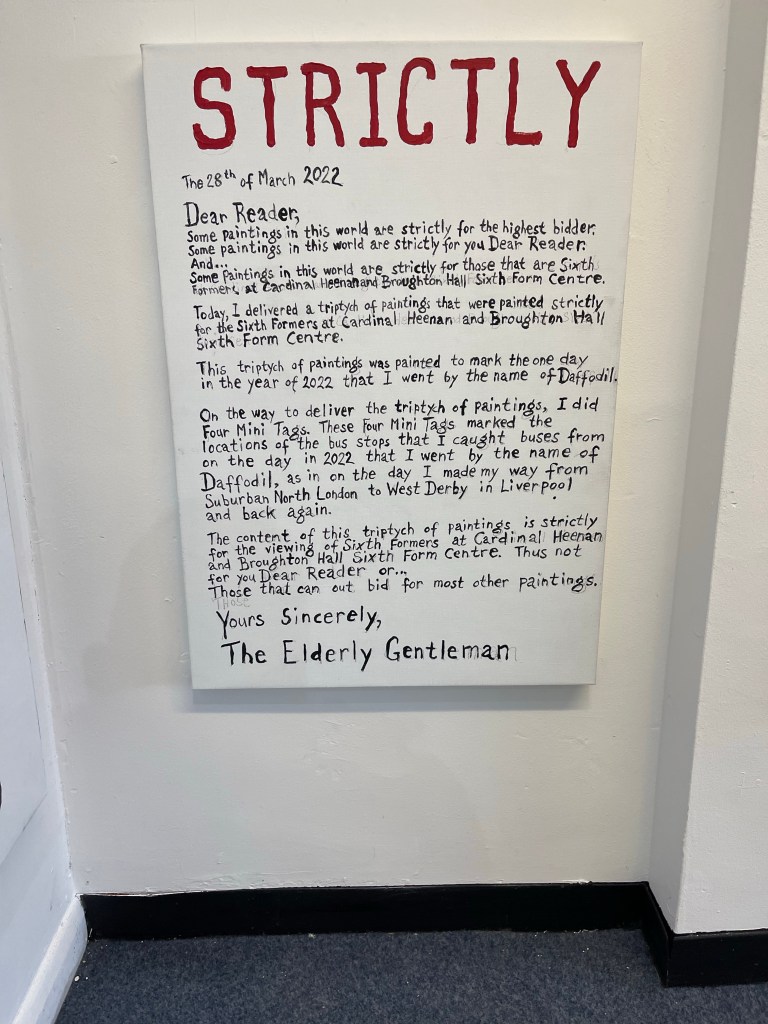 STRICTLY
The 28th of March 2022
Dear Reader,
Some paintings in this world are strictly for the highest bidder.
Some paintings in this world are strictly for you Dear Reader.
And...
Some paintings in this world are strictly for those that are Sixth
Formers, at Cardinal Heenan and Broughton Hall Sixth Form Centre.
Today, I delivered a triptych of paintings that were painted strictly
for the Sixth Formers at Cardinal Heenan and Broughton Hall
Sixth Form Centre.
This triptych of paintings was painted to mark the one day
in the year of 2022 that I went by the name of Daffodil.
On the way to deliver the triptych of paintings, I did
Four Mini Tags. These Four Mini Tags marked the
locations of the bus stops that I caught buses from
on the day in 2022 that I went by the name of
Daffodil, as in on the day I made my way from
Suburban North London to West Derby in Liverpool
and back again.
The content of this triptych of paintings is strictly
for the viewing of Sixth Formers at Cardinal Heenan
and Broughton Hall Sixth Form Centre. Thus not
for you Dear Reader or...
Those that can out bid for most other paintings.
Those
Yours Sincerely,
The Elderly Gentleman